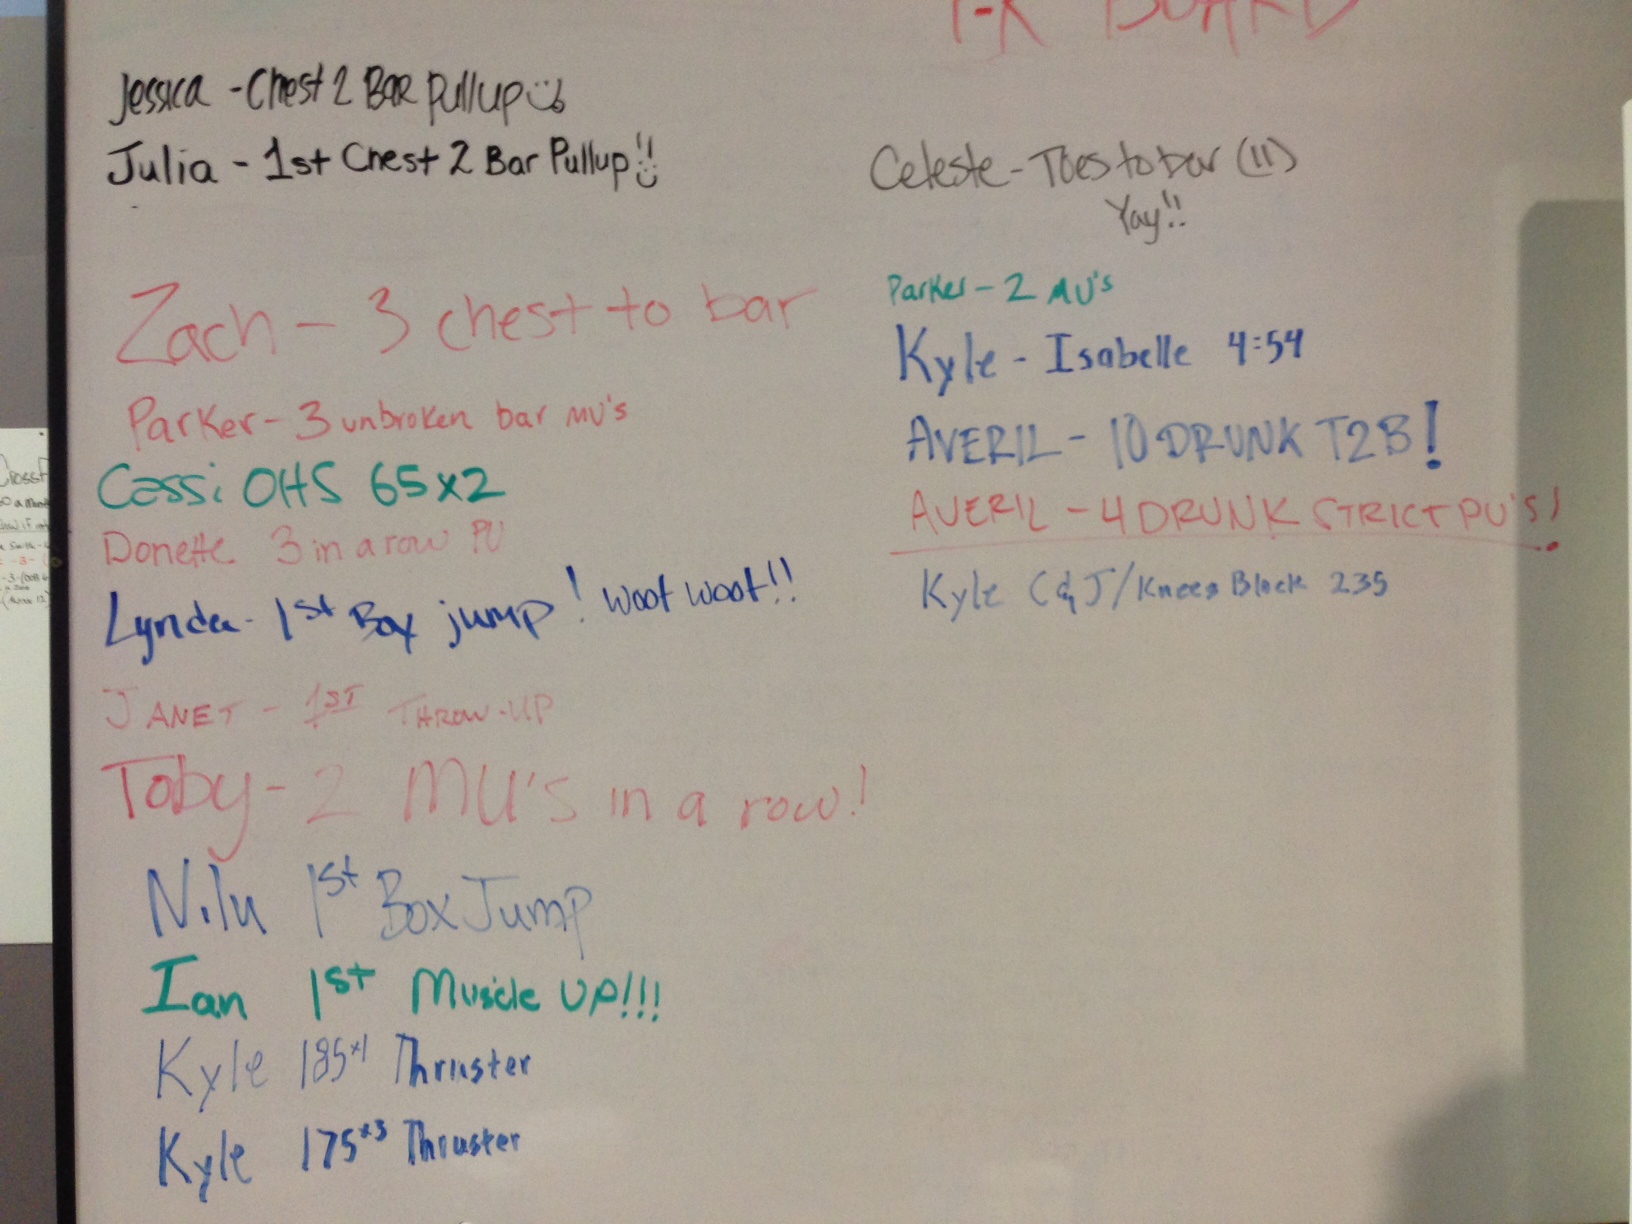 BOARD
Jessica - Chest 2 BAR Pullup
Julia - 1st Chest 2 Bar Pullup!!
Zach - 3 chest to bar
Parker - 3 unbroken bar MU's
Cassi OHS 65x2
Donette 3 in a row PU
Lynda - 1st Box jump! woot woot!!
JANET - 1ST THROW-UP
Toby - 2 MU's in a row!
Nilu 1st Box Jump
Ian 1st Muscle UP!!!
Kyle 185x1 Thruster
Kyle 175x3 Thruster
Celeste - Toes to bar (11)
Yay!!
Parker - 2 MU's
Kyle - Isabelle 4:54
AVERIL - 10 DRUNK T2B!
AVERIL - 4 DRUNK STRICT PU'S!
Kyle C&J/Knees Block 235